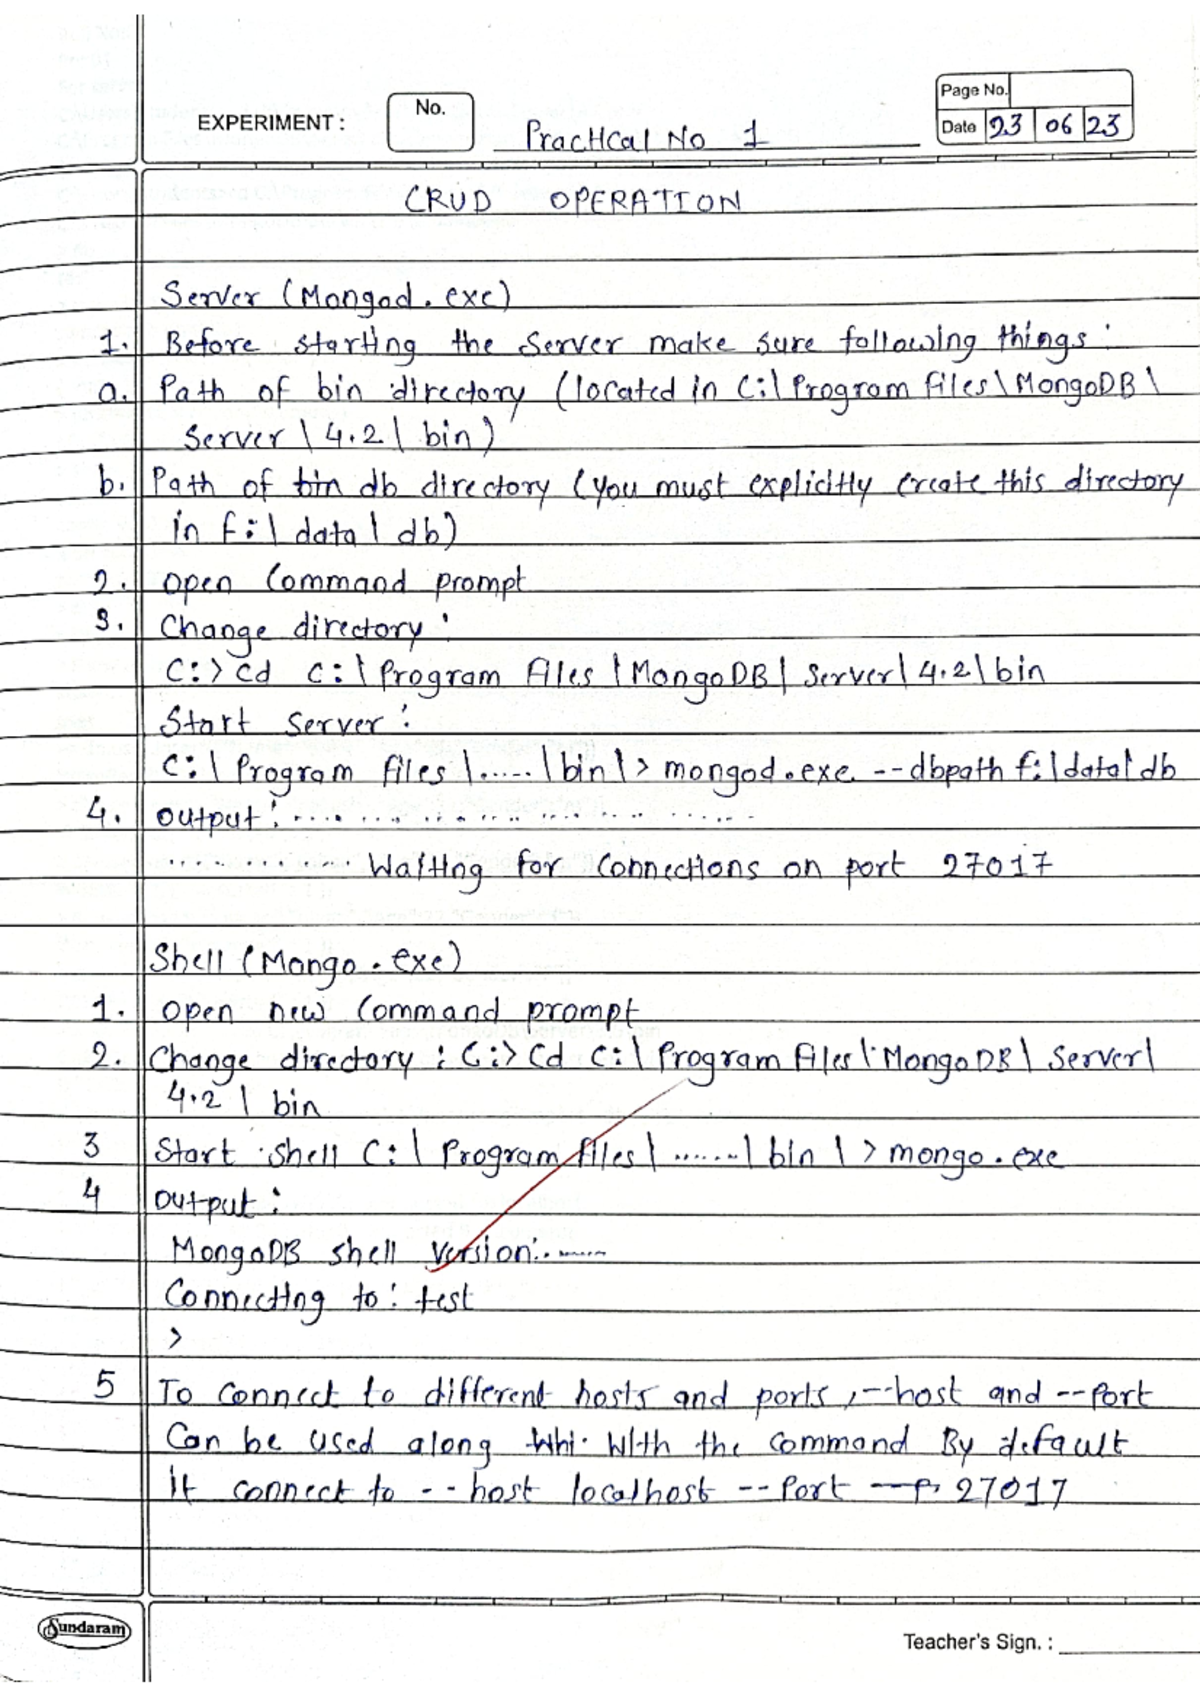 EXPERIMENT :
No.
Practical No 1
Page No.
Date 23 06 23
CRUD OPERATION
Server (Mongod.exe)
1. Before starting the Server make sure following things :
a. Path of bin directory (located in C:\Program files\MongoDB\
Server\4.2\bin)
b. Path of bin db directory (you must explicitly create this directory
in f:\data\db)
2. Open Command prompt
3. Change directory :
C:> cd C:\Program Files\MongoDB\Server\4.2\bin
Start Server :
C:\Program files\.....\bin\> mongod.exe --dbpath f:\data\db
4. Output : .... ... .. .. ... .. .. .....
.. ... .. .... ..... Waiting for Connections on port 27017
Shell (Mongo.exe)
1. Open new Command prompt
2. Change directory : C:> cd C:\Program Files\MongoDB\Server\
4.2\bin
3 Start Shell C:\Program files\.......\bin\> mongo.exe
4 Output :
MongoDB shell version:.......
Connecting to : test
>
5 To connect to different hosts and ports, --host and --Port
Can be used along Whi. With the Command By default
it connect to --host localhost --Port 27017
Sundaram
Teacher's Sign. :